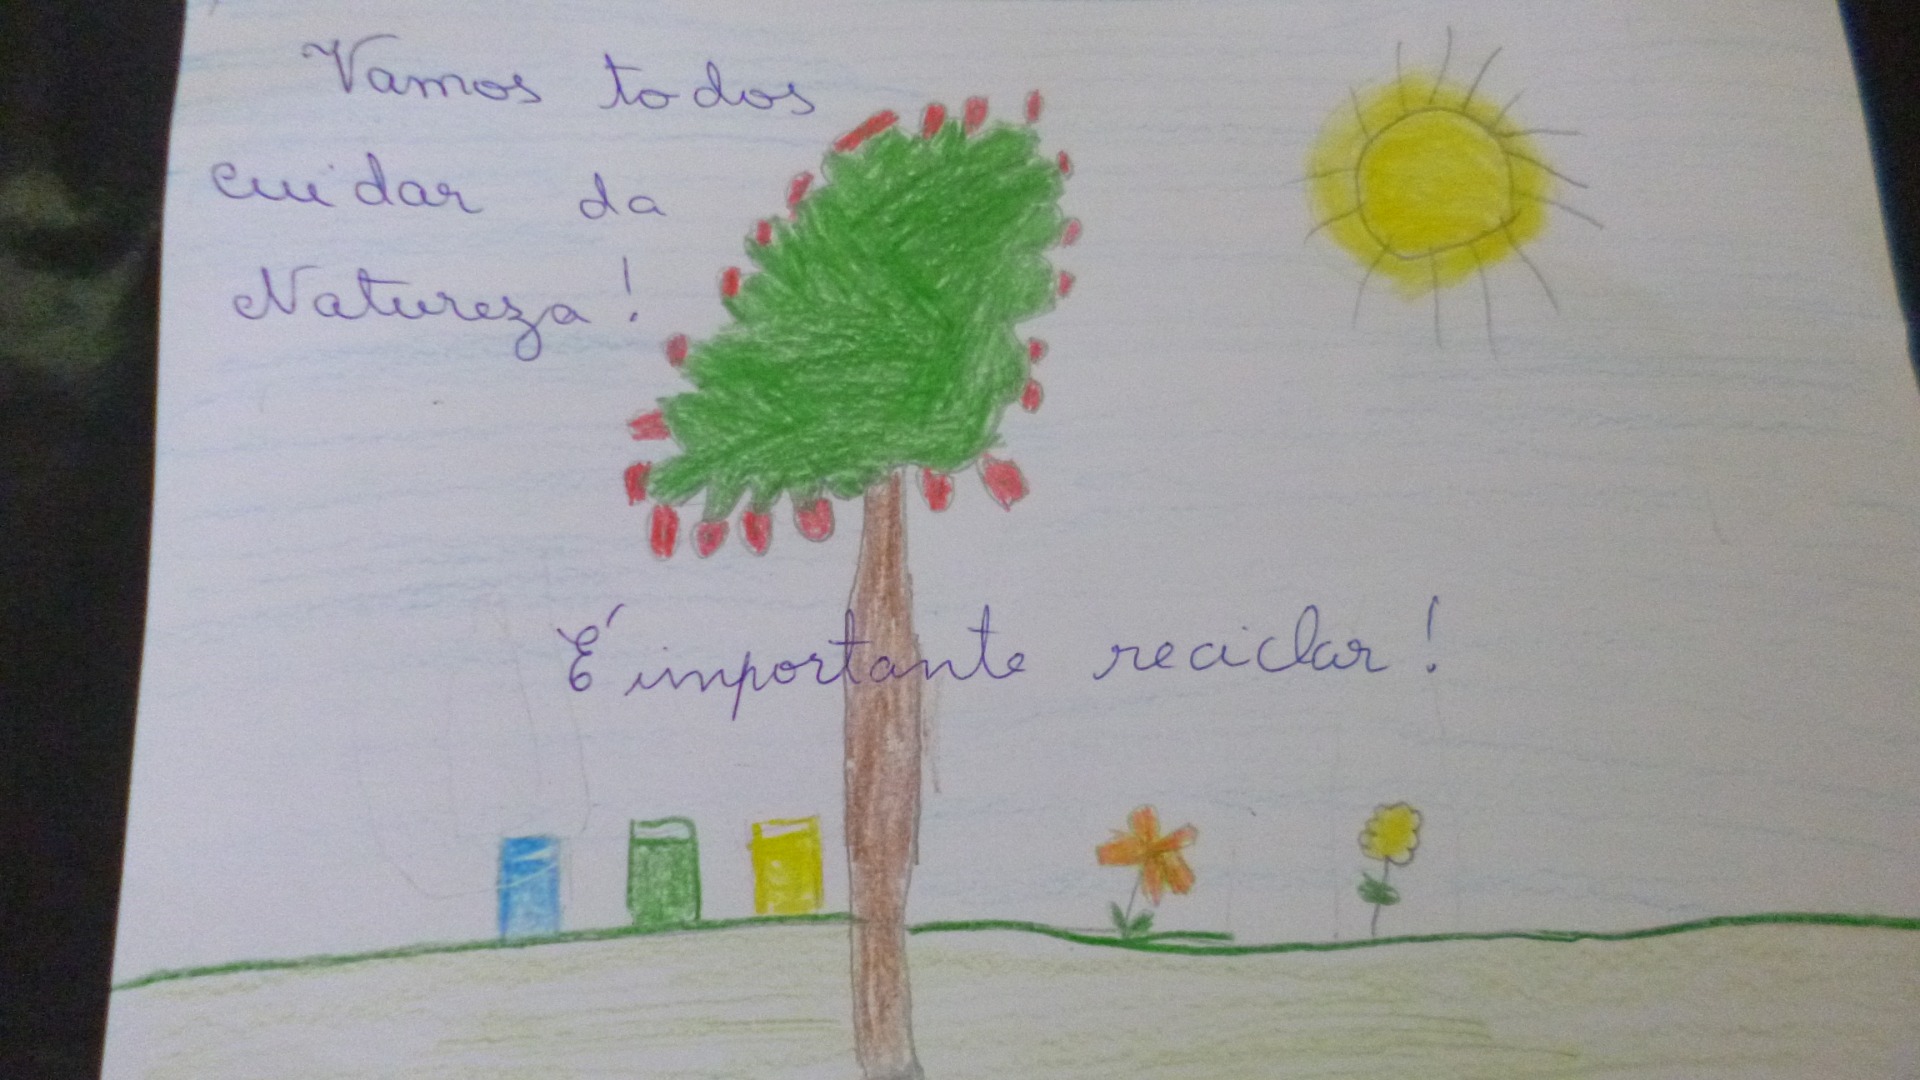 Vamos todos
cuidar da
Natureza!
É importante reciclar!